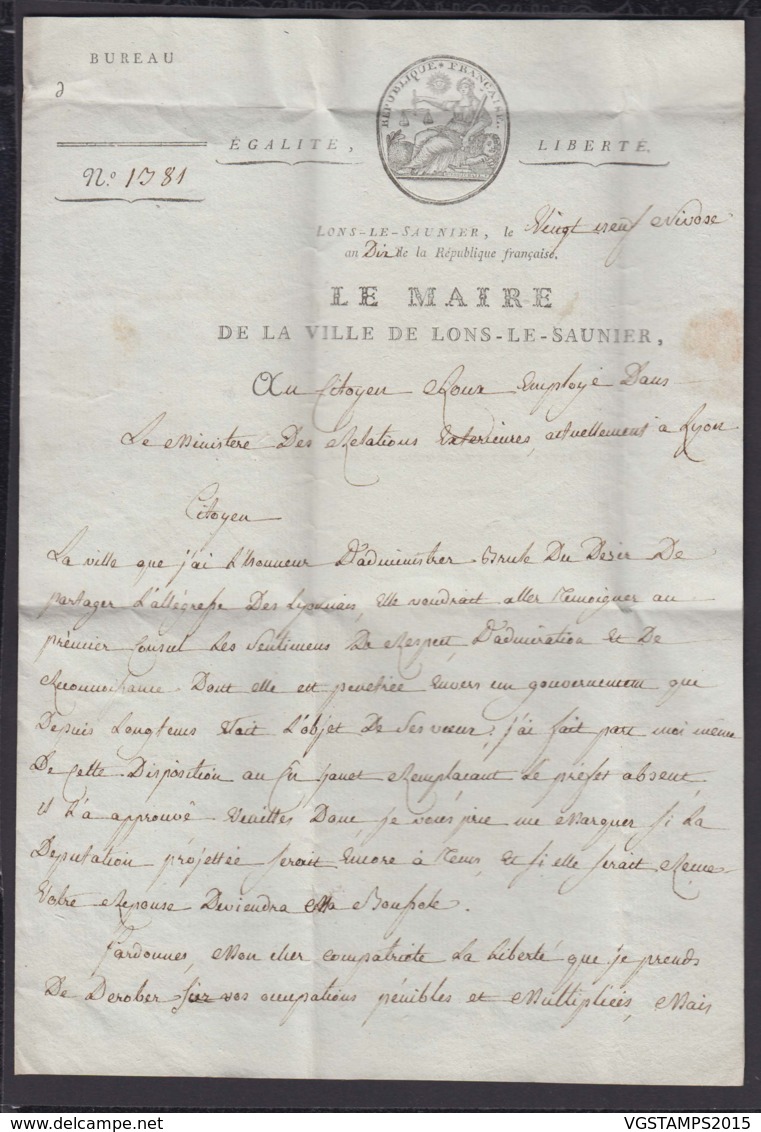 BUREAU
d
RÉPUBLIQUE FRANÇAISE.
ÉGALITÉ,
LIBERTÉ.
N.º 1381
LONS-LE-SAUNIER, le Vingt neuf Nivose
an Dix de la République française.
LE MAIRE
DE LA VILLE DE LONS-LE-SAUNIER,
Au Citoyen Roux Employé Dans
Le Ministere Des Relations Exterieures, actuellement à Lyon
Citoyen
La ville que j'ai L'honneur D'administrer Brule Du Desir De
partager L'allégresse Des Lyonnais, Elle voudrait aller Temoigner au
prémier Consul Les Sentimens De Respect, D'admiration Et De
Reconnoissance Dont elle est penetrée Envers un gouvernement que
Depuis Longtems Etait L'objet De Ses voeux; j'ai fait part moi même
De Cette Disposition au Cn. janet Remplaçant Le préfet absent,
il L'a approuvé Veuilles Donc, je vous prie me Marquer Si La
Deputation projettée Serait Encore à Tems, Et Si elle serait Recue.
Votre Reponse Deviendra Ma Boussole.
Pardonnes, Mon cher compatriote La Liberté que je prends
De Derober sur vos occupations pénibles et Multipliées, Mais
VGSTAMPS2015